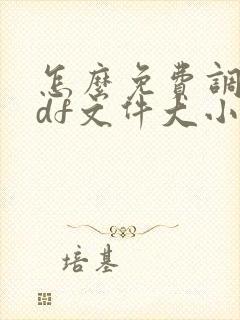 怎麼免費調
df文件大小
培基